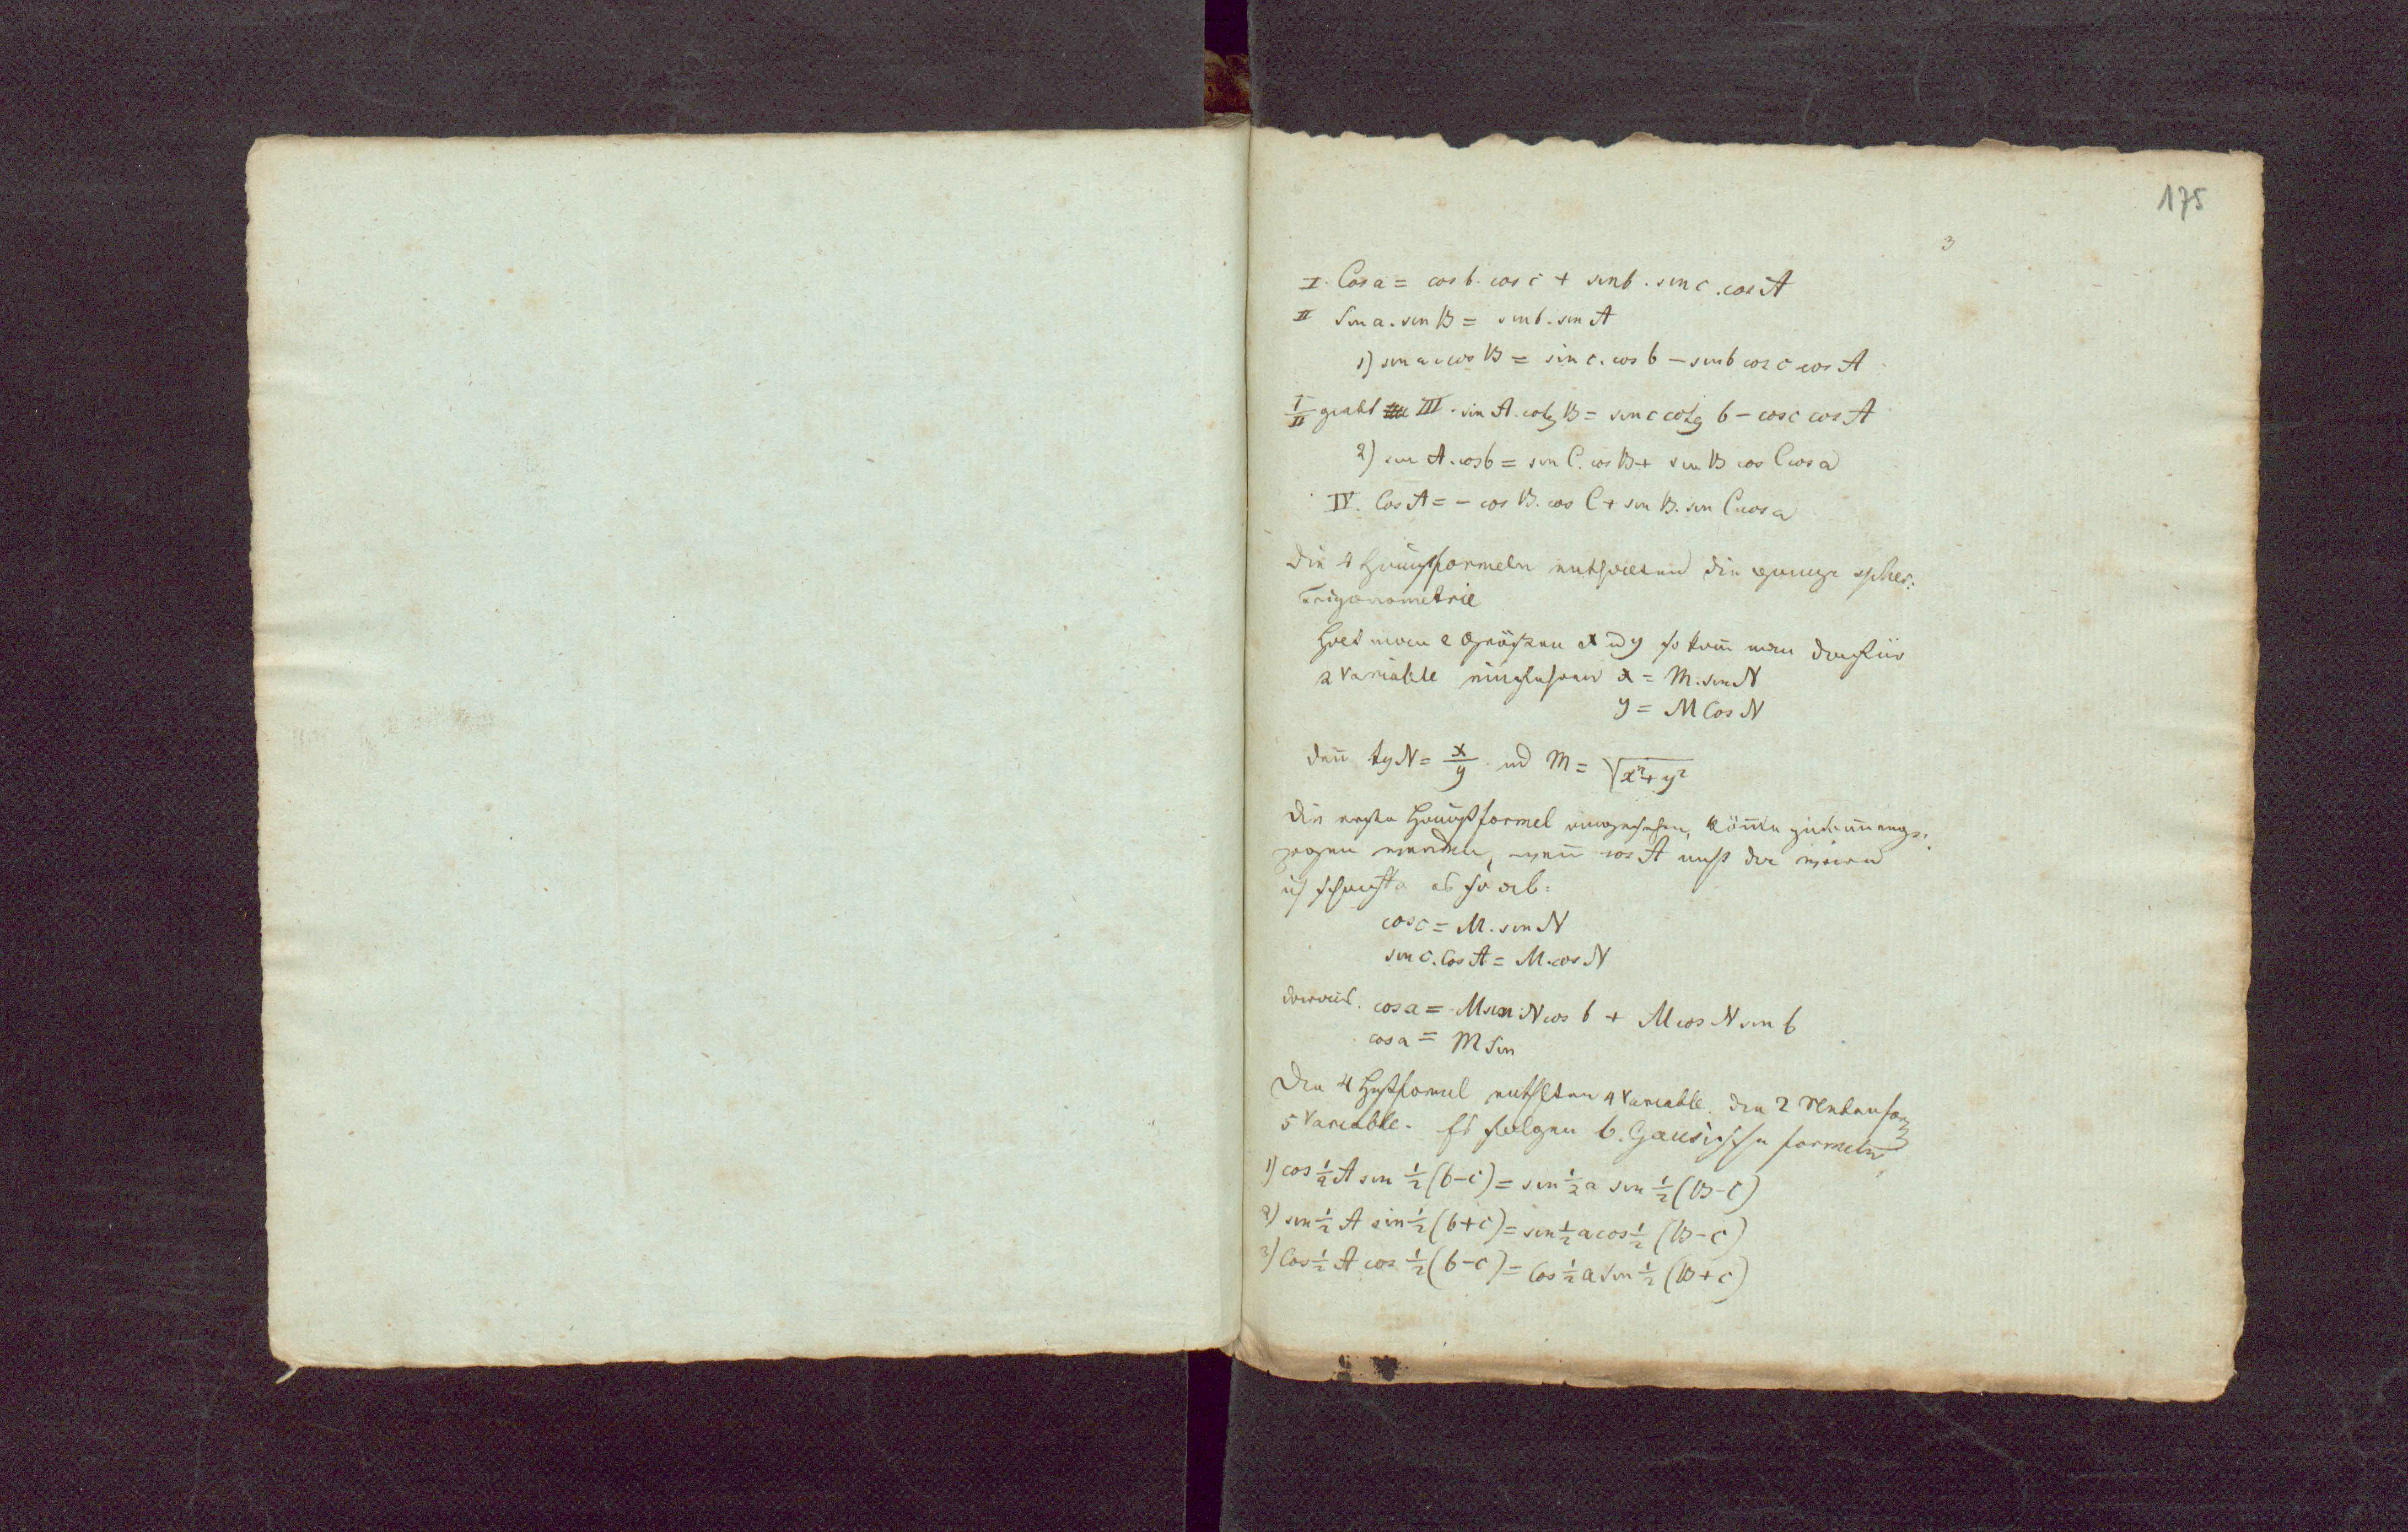 175
3
I. Cos a = cos b. cos c + sin b. sin c. cos A
II Sin a. sin B = sin b. sin A
1) sin a. cos B = sin c. cos b – sin b cos c cos A
I/II giebt III. sin A. cotg B = sin c cotg b – cos c cos A
2) sin A. cos b = sin C. cos B + sin B cos C cos a
IV. Cos A = – cos B. cos C + sin B. sin C cos a
Die 4 Hauptformeln enthalten die ganze spher:
Trigonometrie
Hat man 2 Größen x und y so kann man dafür
2 Variable einführen x = M. sin N
y = M Cos N
denn tg N = x/y und M = √x²+y²
Die erste Hauptformel angesehen, könnte
werden, wenn cos A nicht da wären
ich schaffte es so ab:
cos c = M. sin N
sin c. Cos A = M. cos N
daraus. cos a = M sin N cos b + M cos N sin b
cos a = M Sin
Die 4 Hptformel enthalten 4 Variable. die 2 Nebenfor
5 Variable. Es folgen 6. Gausischen formeln
1) cos ½ A sin ½ (b–c) = sin ½ a sin ½ (B–C)
2) sin ½ A sin ½ (b+c) = sin ½ a cos ½ (B–C)
3) Cos ½ A cos ½ (b–c) = Cos ½ a Sin ½ (B+C)